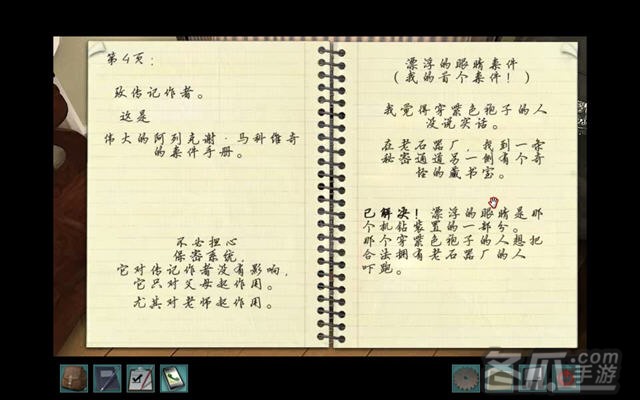 第4页：
致传记作者。
这是
伟大的阿列克谢·马科维奇
的案件手册。
不必担心
保密系统，
它对传记作者没有影响，
它只对父母起作用。
尤其对老师起作用。
漂浮的眼睛案件
（我的首个案件！）
我觉得穿紫色袍子的人
没说实话。
在老石器厂，找到一条
秘密通道另一侧有个奇
怪的藏书室。
已解决！漂浮的眼睛是那
个机钻装置的一部分。
那个穿紫色袍子的人想把
合法拥有老石器厂的人
吓跑。
名爪.com
手游